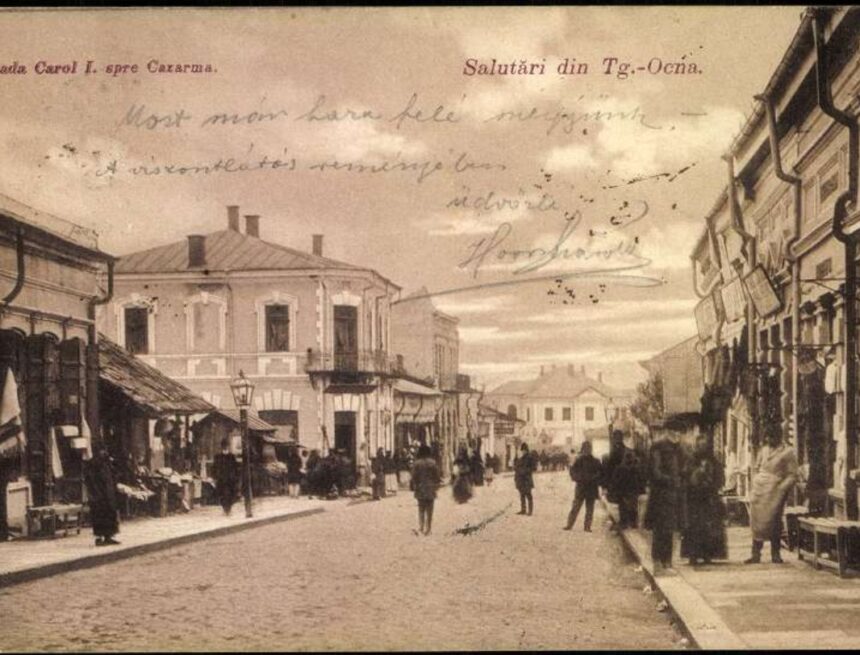 ada Carol I. spre Cazarma.
Salutări din Tg.-Ocna.
Most már haza felé megyünk –
A viszontlátás reményében
üdvözli